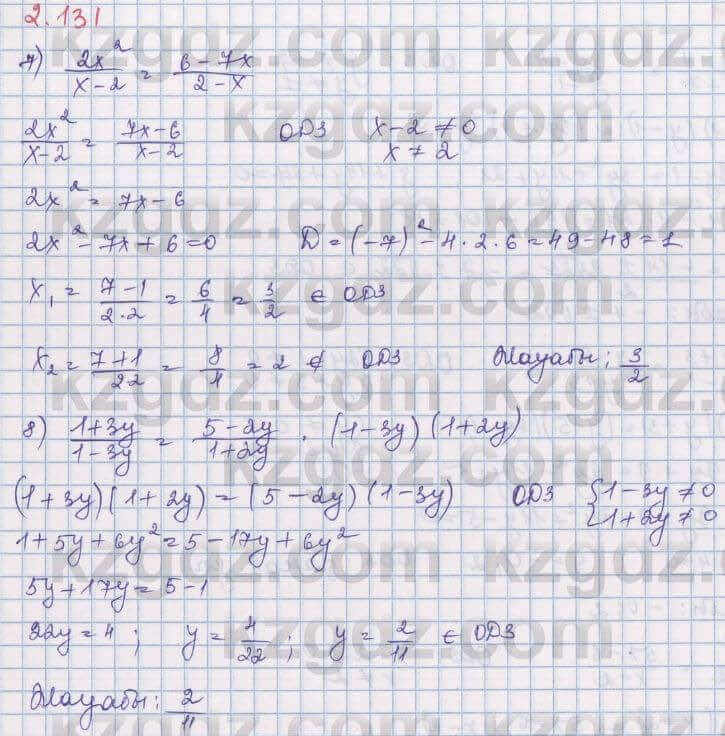 2.131
7) 2x²/(x-2) = (6-7x)/(2-x)
2x²/(x-2) = (7x-6)/(x-2) ОДЗ x-2≠0
x≠2
2x² = 7x-6
2x²-7x+6=0 D=(-7)²-4·2·6=49-48=1
x₁ = (7-1)/(2·2) = 6/4 = 3/2 ∈ ОДЗ
x₂ = (7+1)/22 = 8/4 = 2 ∉ ОДЗ Жауабы: 3/2
8) (1+3y)/(1-3y) = (5-2y)/(1+2y) · (1-3y)(1+2y)
(1+3y)(1+2y) = (5-2y)(1-3y) ОДЗ {1-3y≠0
{1+2y≠0
1+5y+6y²=5-17y+6y²
5y+17y=5-1
22y=4; y=4/22; y=2/11 ∈ ОДЗ
Жауабы: 2/11
kzgdz.com